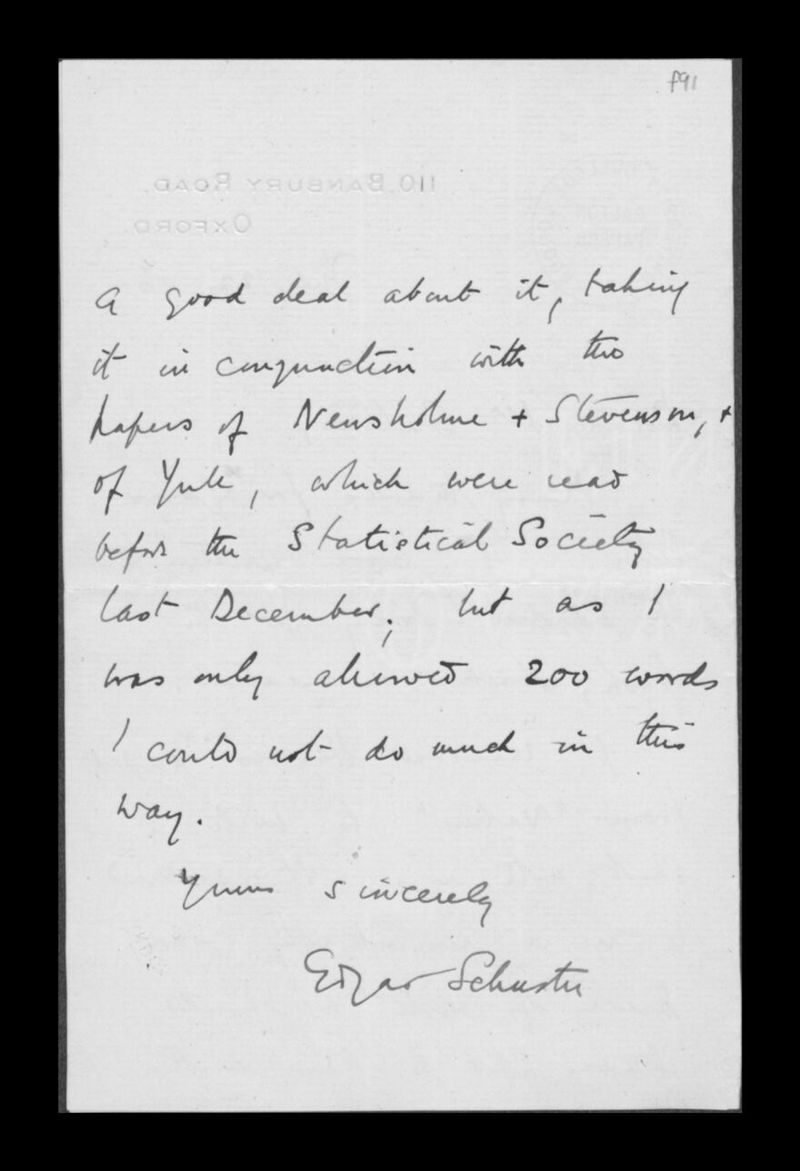 f91
110, BANBURY ROAD,
OXFORD.
a good deal about it, taking
it in conjunction with the
papers of Newsholme + Stevenson, +
of Yule, which were read
before the Statistical Society
last December; but as I
was only allowed 200 words
I could not do much in this
way.
Yours sincerely
Edgar Schuster